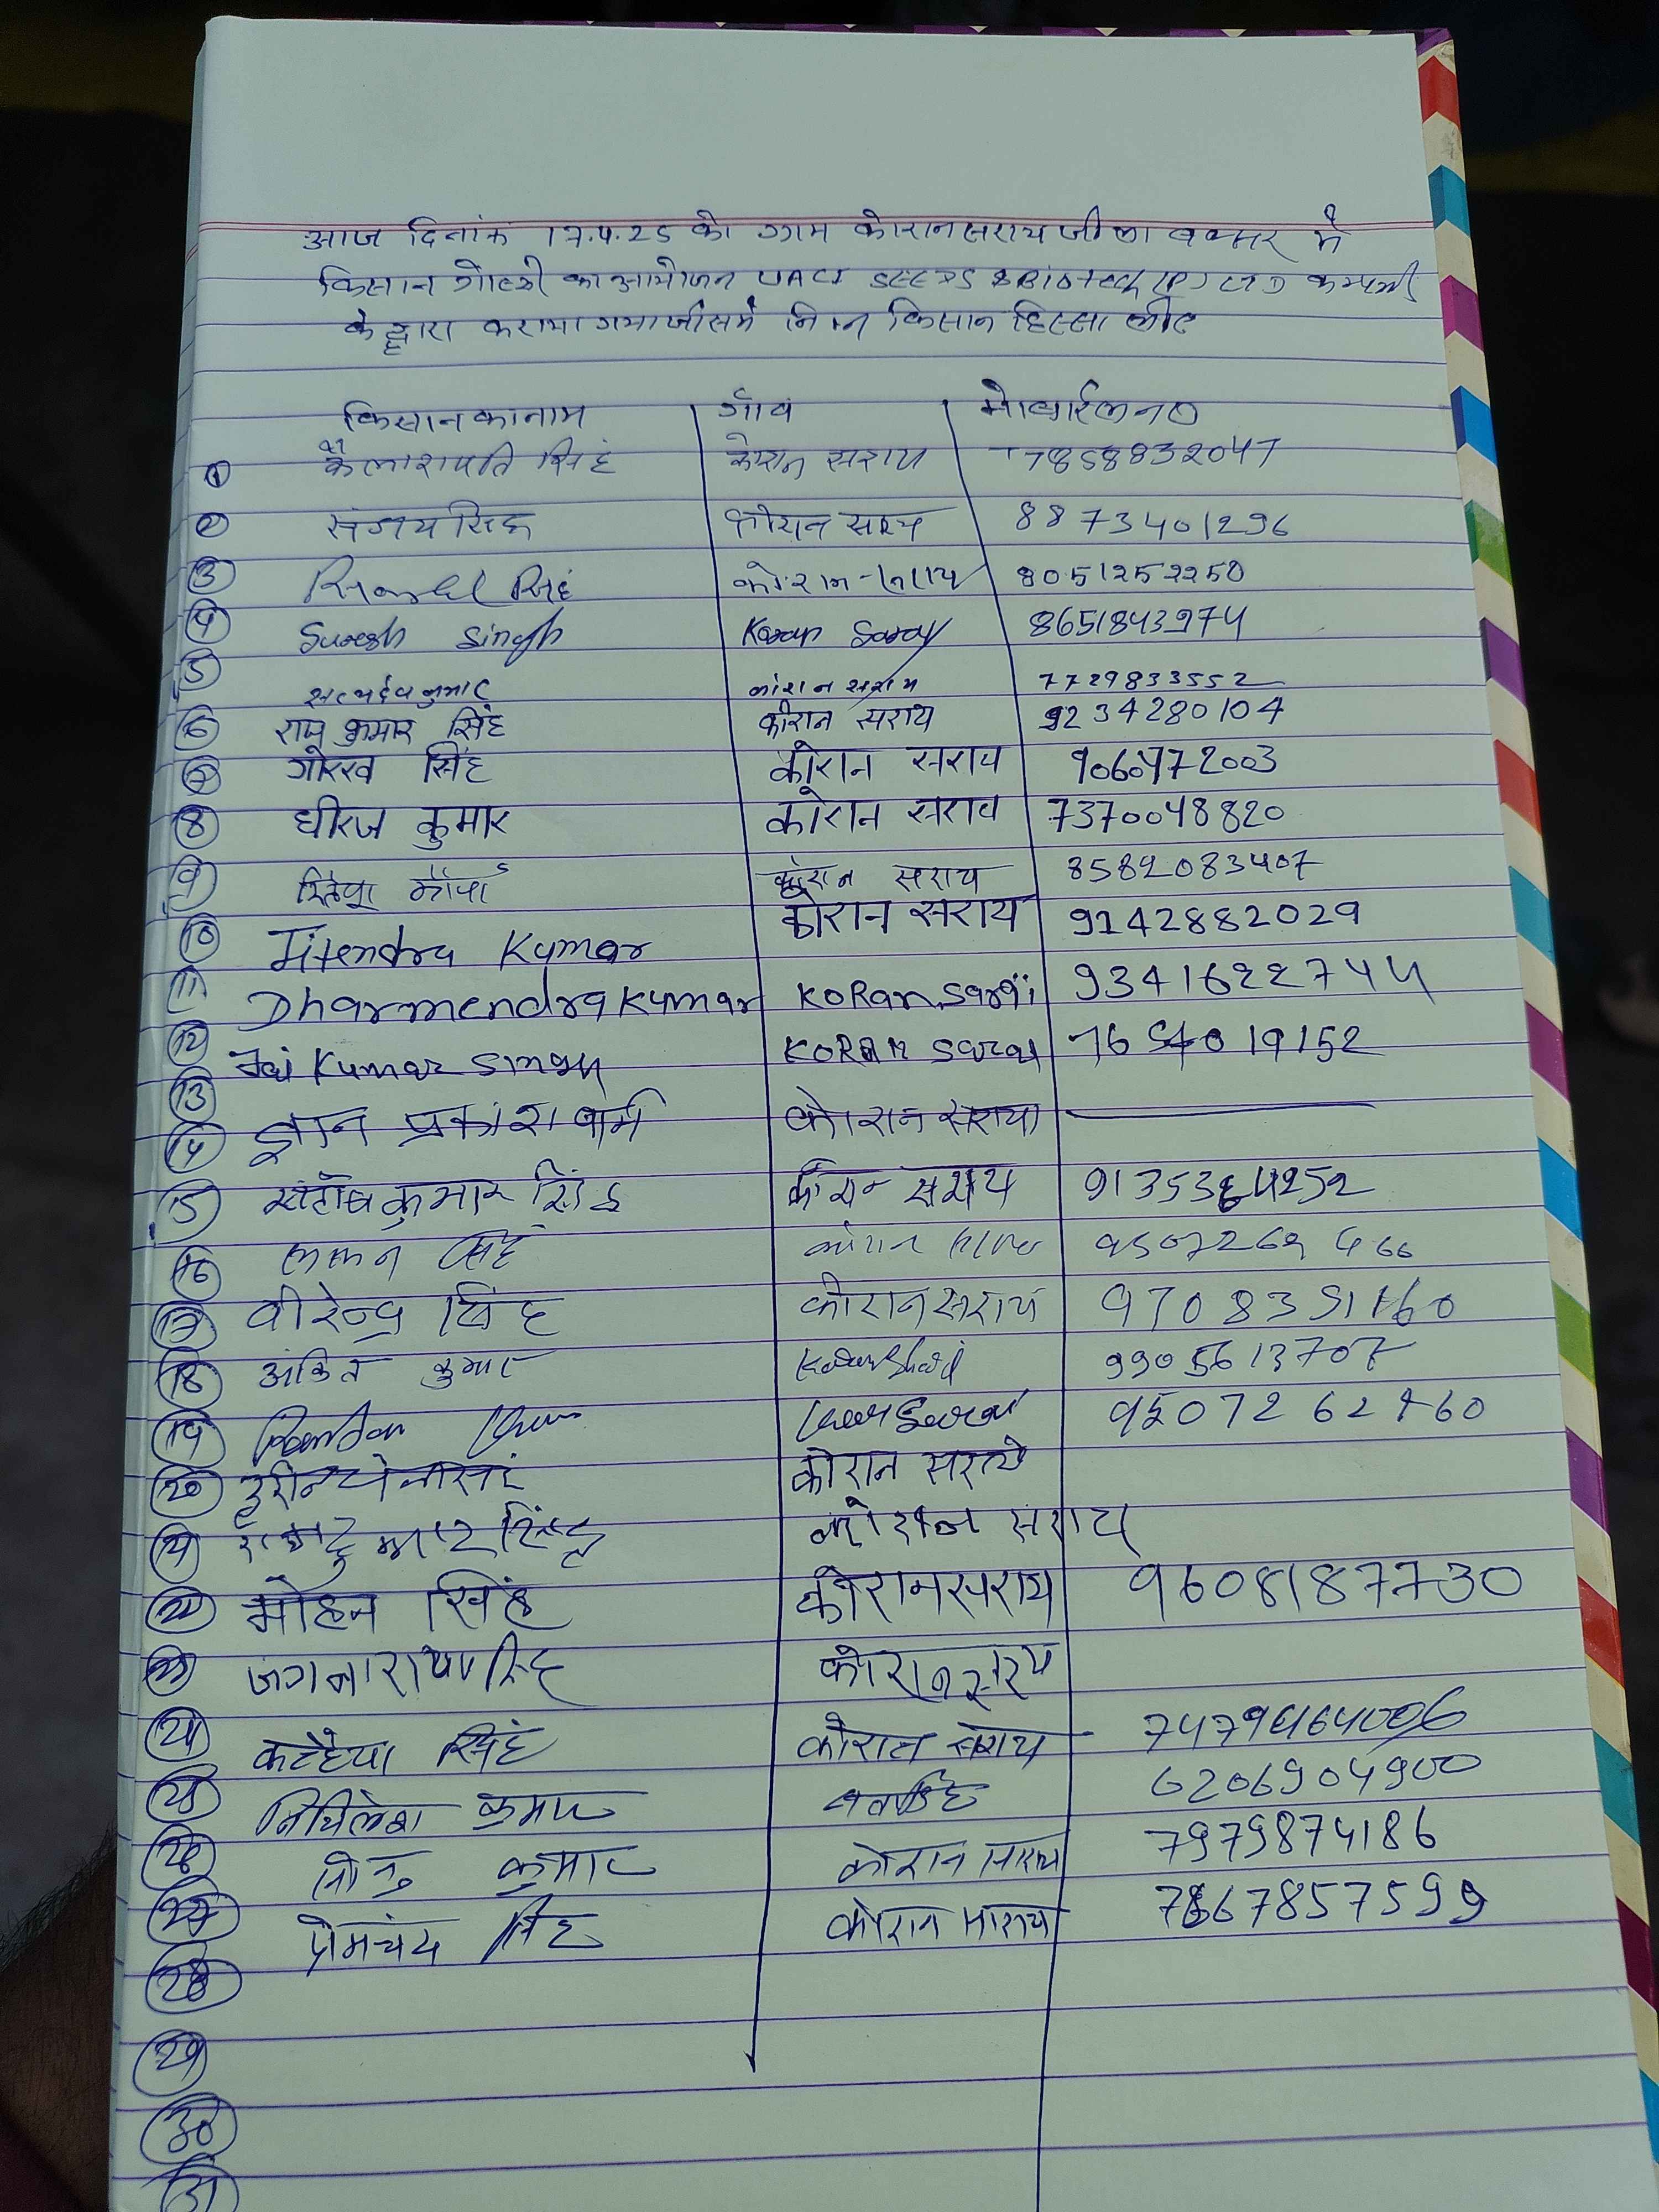 आज दिनांक 17.4.25 को ग्राम कोरानसराय जीला बक्सर में
किसान गोष्ठी का आयोजन UACI SEEDS & BioTech (P) LTD कम्पनी
के द्वारा कराया गया जीसमें निम्न किसान हिस्सा लीए
किसान का नाम गाँव मोबाईल न०
① कैलाशपति सिहं कोरान सराय 7858832047
② संजय सिंह कोरान सराय 8873401296
③ सिहं कोरान सराय 8051252250
④ Suresh Singh Koran Saray 8651843974
⑤ सत्यदेव कुमार कोरान सराय 7729833552
⑥ राज कुमार सिंह कोरान सराय 9234280104
⑦ गोरख सिंह कोरान सराय 9060472003
⑧ धीरज कुमार कोरान सराय 7370048820
⑨ कोरान सराय 8582083407
⑩ Jitendra Kumar कोरान सराय 9142882029
⑪ Dharmendra Kumar KORan Sarai 9341622744
⑫ Jai Kumar Singh KORAN Sarai 7654019152
⑬
⑭ ज्ञान प्रकाश वर्मा कोरान सराया —
⑮ संतोष कुमार सिंह कोरान सराय
⑯ ललन सिंह कोरान सराय
⑰ वीरेन्द्र सिंह कोरान सराय
⑱ अंकित कुमार 9905613707
⑲
⑳ कोरान सराय
21 सिंह कोरान सराय
22 मोहन सिंह कोरानसराय 9608187730
23 जगनारायण सिंह कोरान सराय
24 कन्हैया सिंह कोरान सराय
25 मिथिलेश कुमार 6206904900
26 कुमार कोरान सराय 7979874186
27 प्रेमचंद सिंह कोरान सराय
28
29
30
31